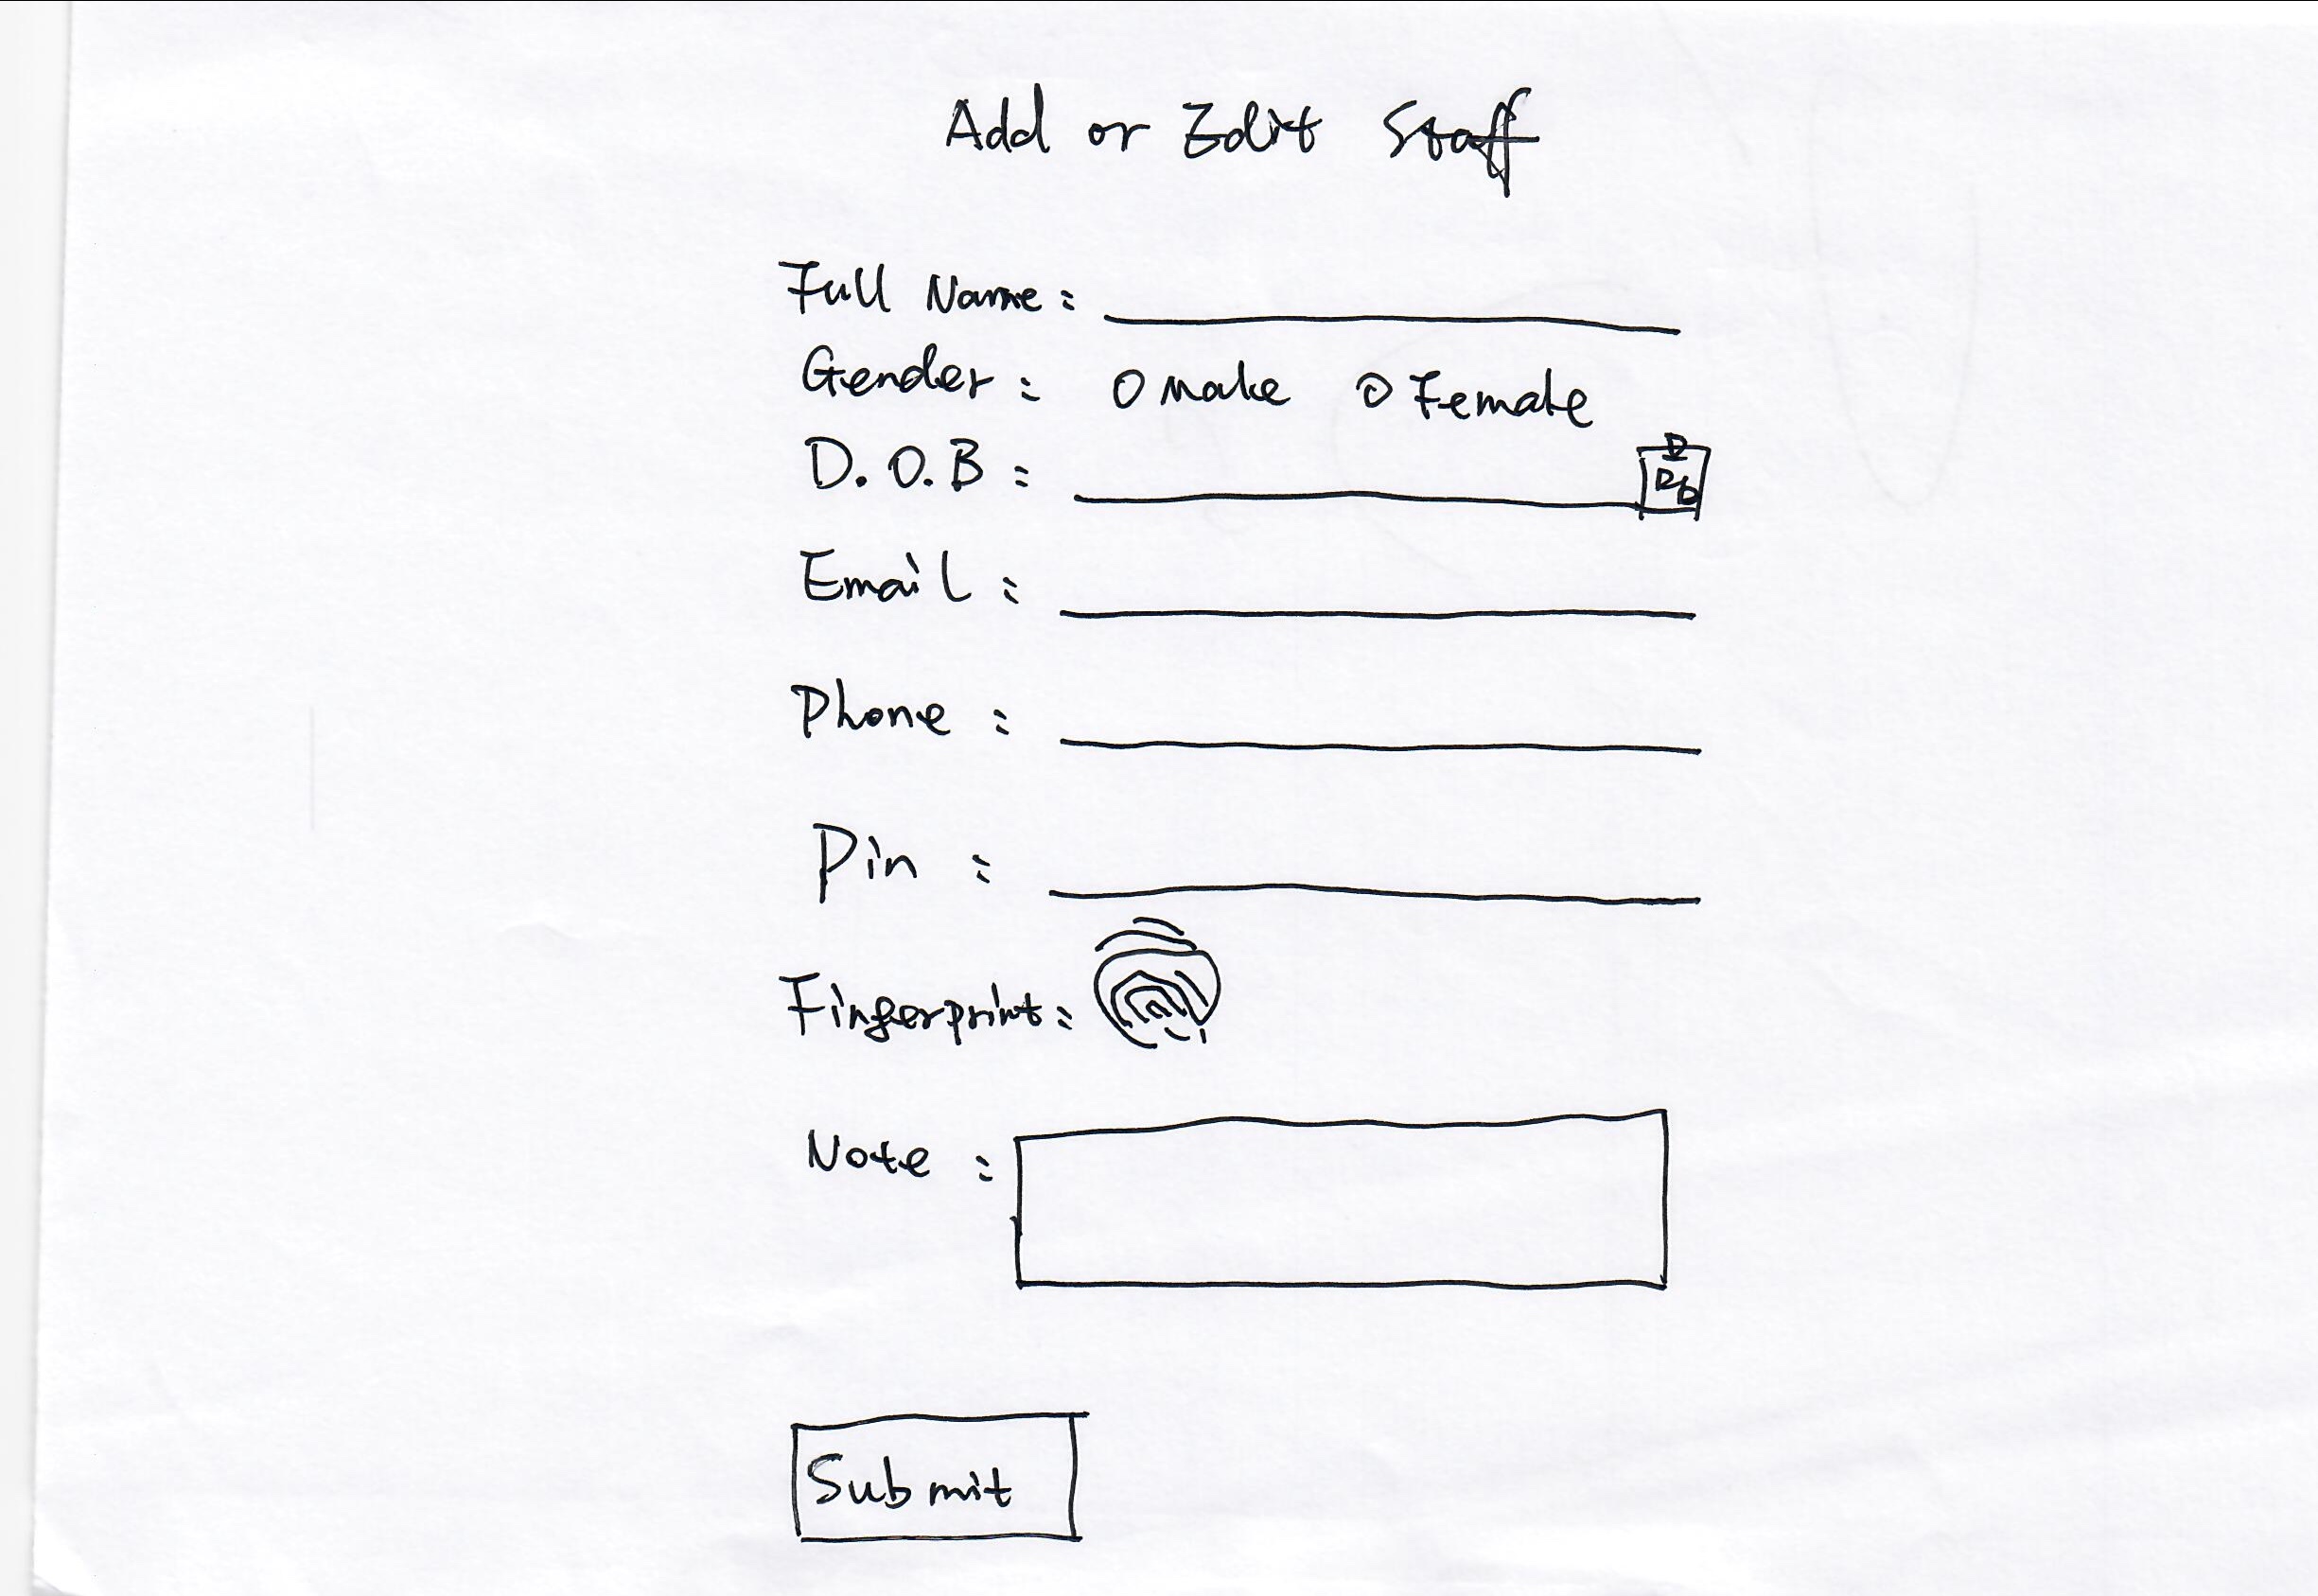 Add or Edit Staff
Full Name :
Gender : O make O Female
D.O.B :
Email :
Phone :
Pin :
Fingerprint :
Note :
Submit